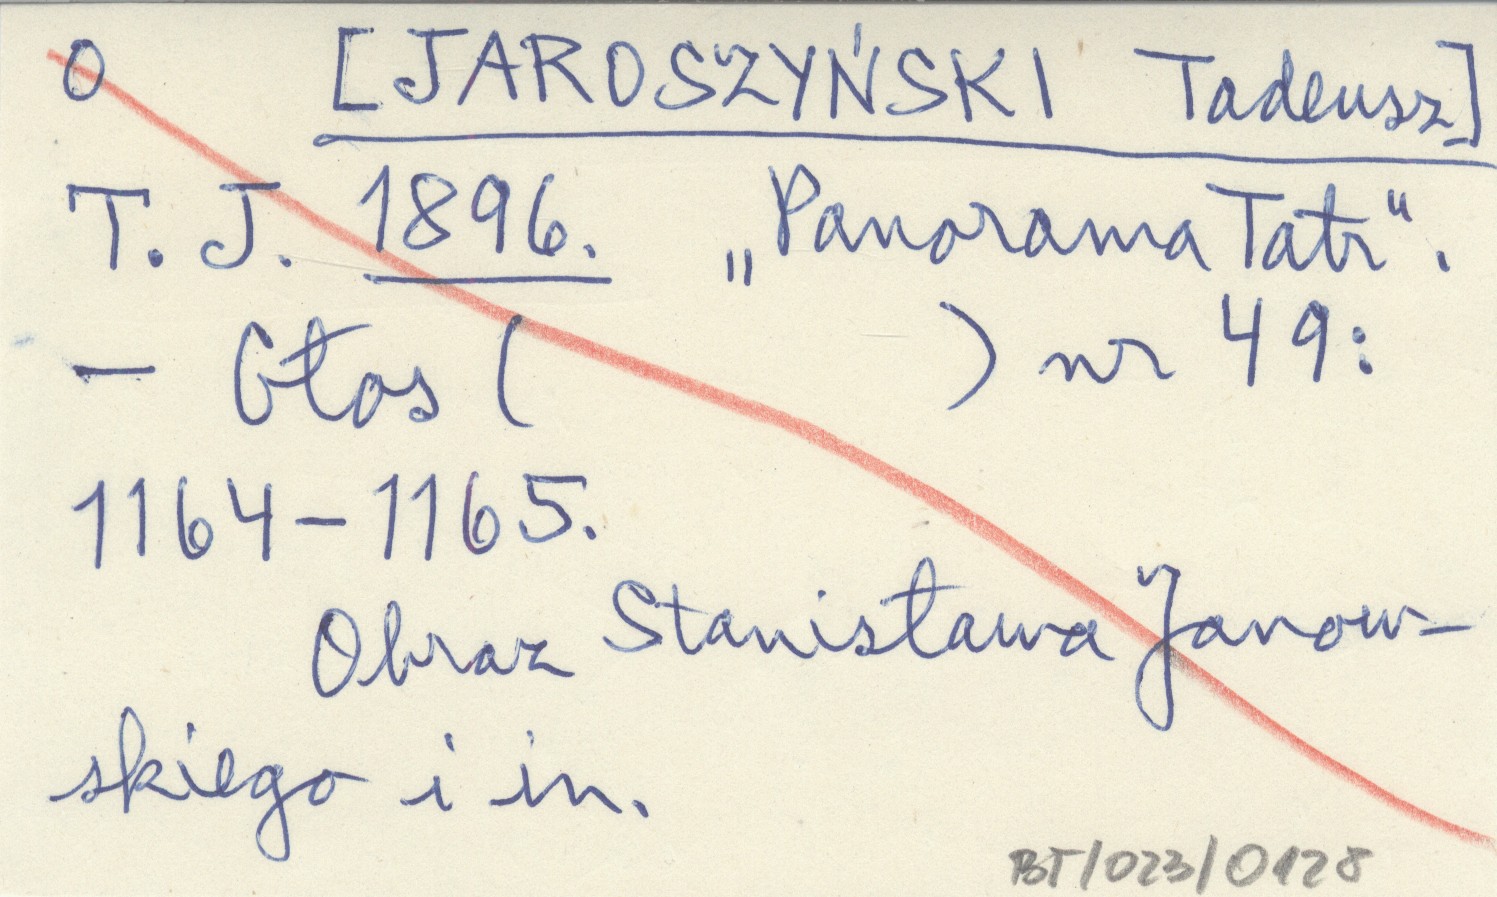 0 [JAROSZYŃSKI Tadeusz]
T. J. 1896. „Panorama Tatr“.
— Głos (                    ) nr 49:
1164–1165.
Obraz Stanisława Janow-
skiego i in.
BT/023/0128